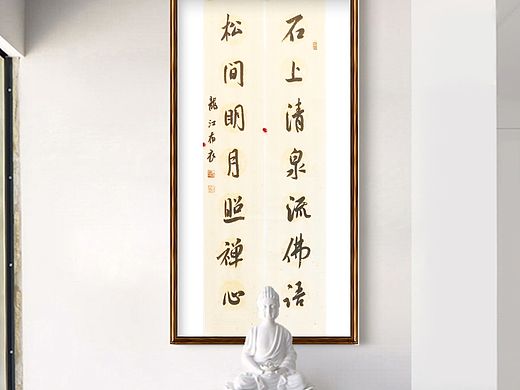 石上清泉流佛语
松间明月照禅心
龍江布衣